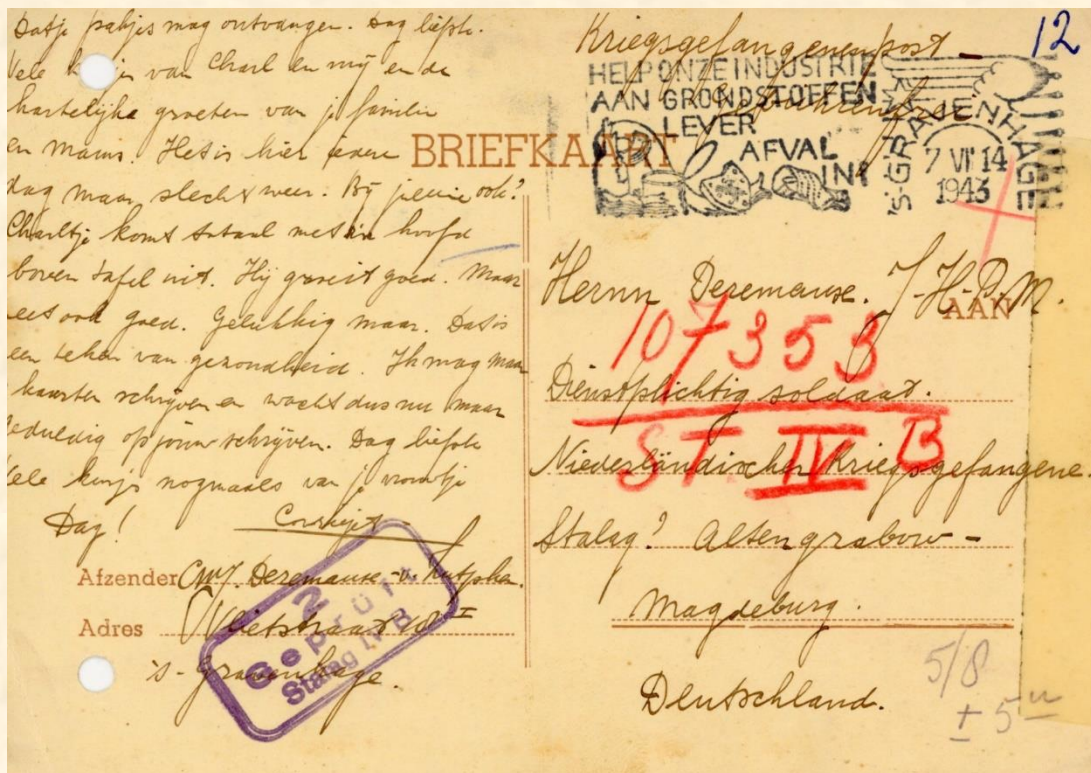 Datje pakjes mag ontvangen. Dag liefste.
Vele van Charl en mij en de
hartelijke groeten van je familie
en mams. Het is hier iedere
dag maar slecht weer. Bij jullie ook?
Charltje komt totaal met z'n hoofd
boven tafel uit. Hij groeit goed. Maar
eet ook goed. Gelukkig maar. Dat is
een teken van gezondheid. Ik mag maar
kaarten schrijven en wacht dus nu maar
geduldig op jouw schrijven. Dag liefste
Vele kusjes nogmaals van je vrouwtje
Dag!
Afzender CWJ. Deremause-v. Zutphen.
Adres Vlietstraat
's-Gravenhage.
2
Geprüft
Stalag IV B
BRIEFKAART
Kriegsgefangenenpost
12
HELP ONZE INDUSTRIE
AAN GRONDSTOFFEN
LEVER
AFVAL
IN!
'S-GRAVENHAGE
7 VI 14
1943
Herrn Deremause. J-H-P-M.
AAN
107353
Dienstplichtig soldaat.
ST. IV B
Niederländischer Kriegsgefangene
Stalag? Altengrabow-
Magdeburg.
Deutschland.
5/8
± 5